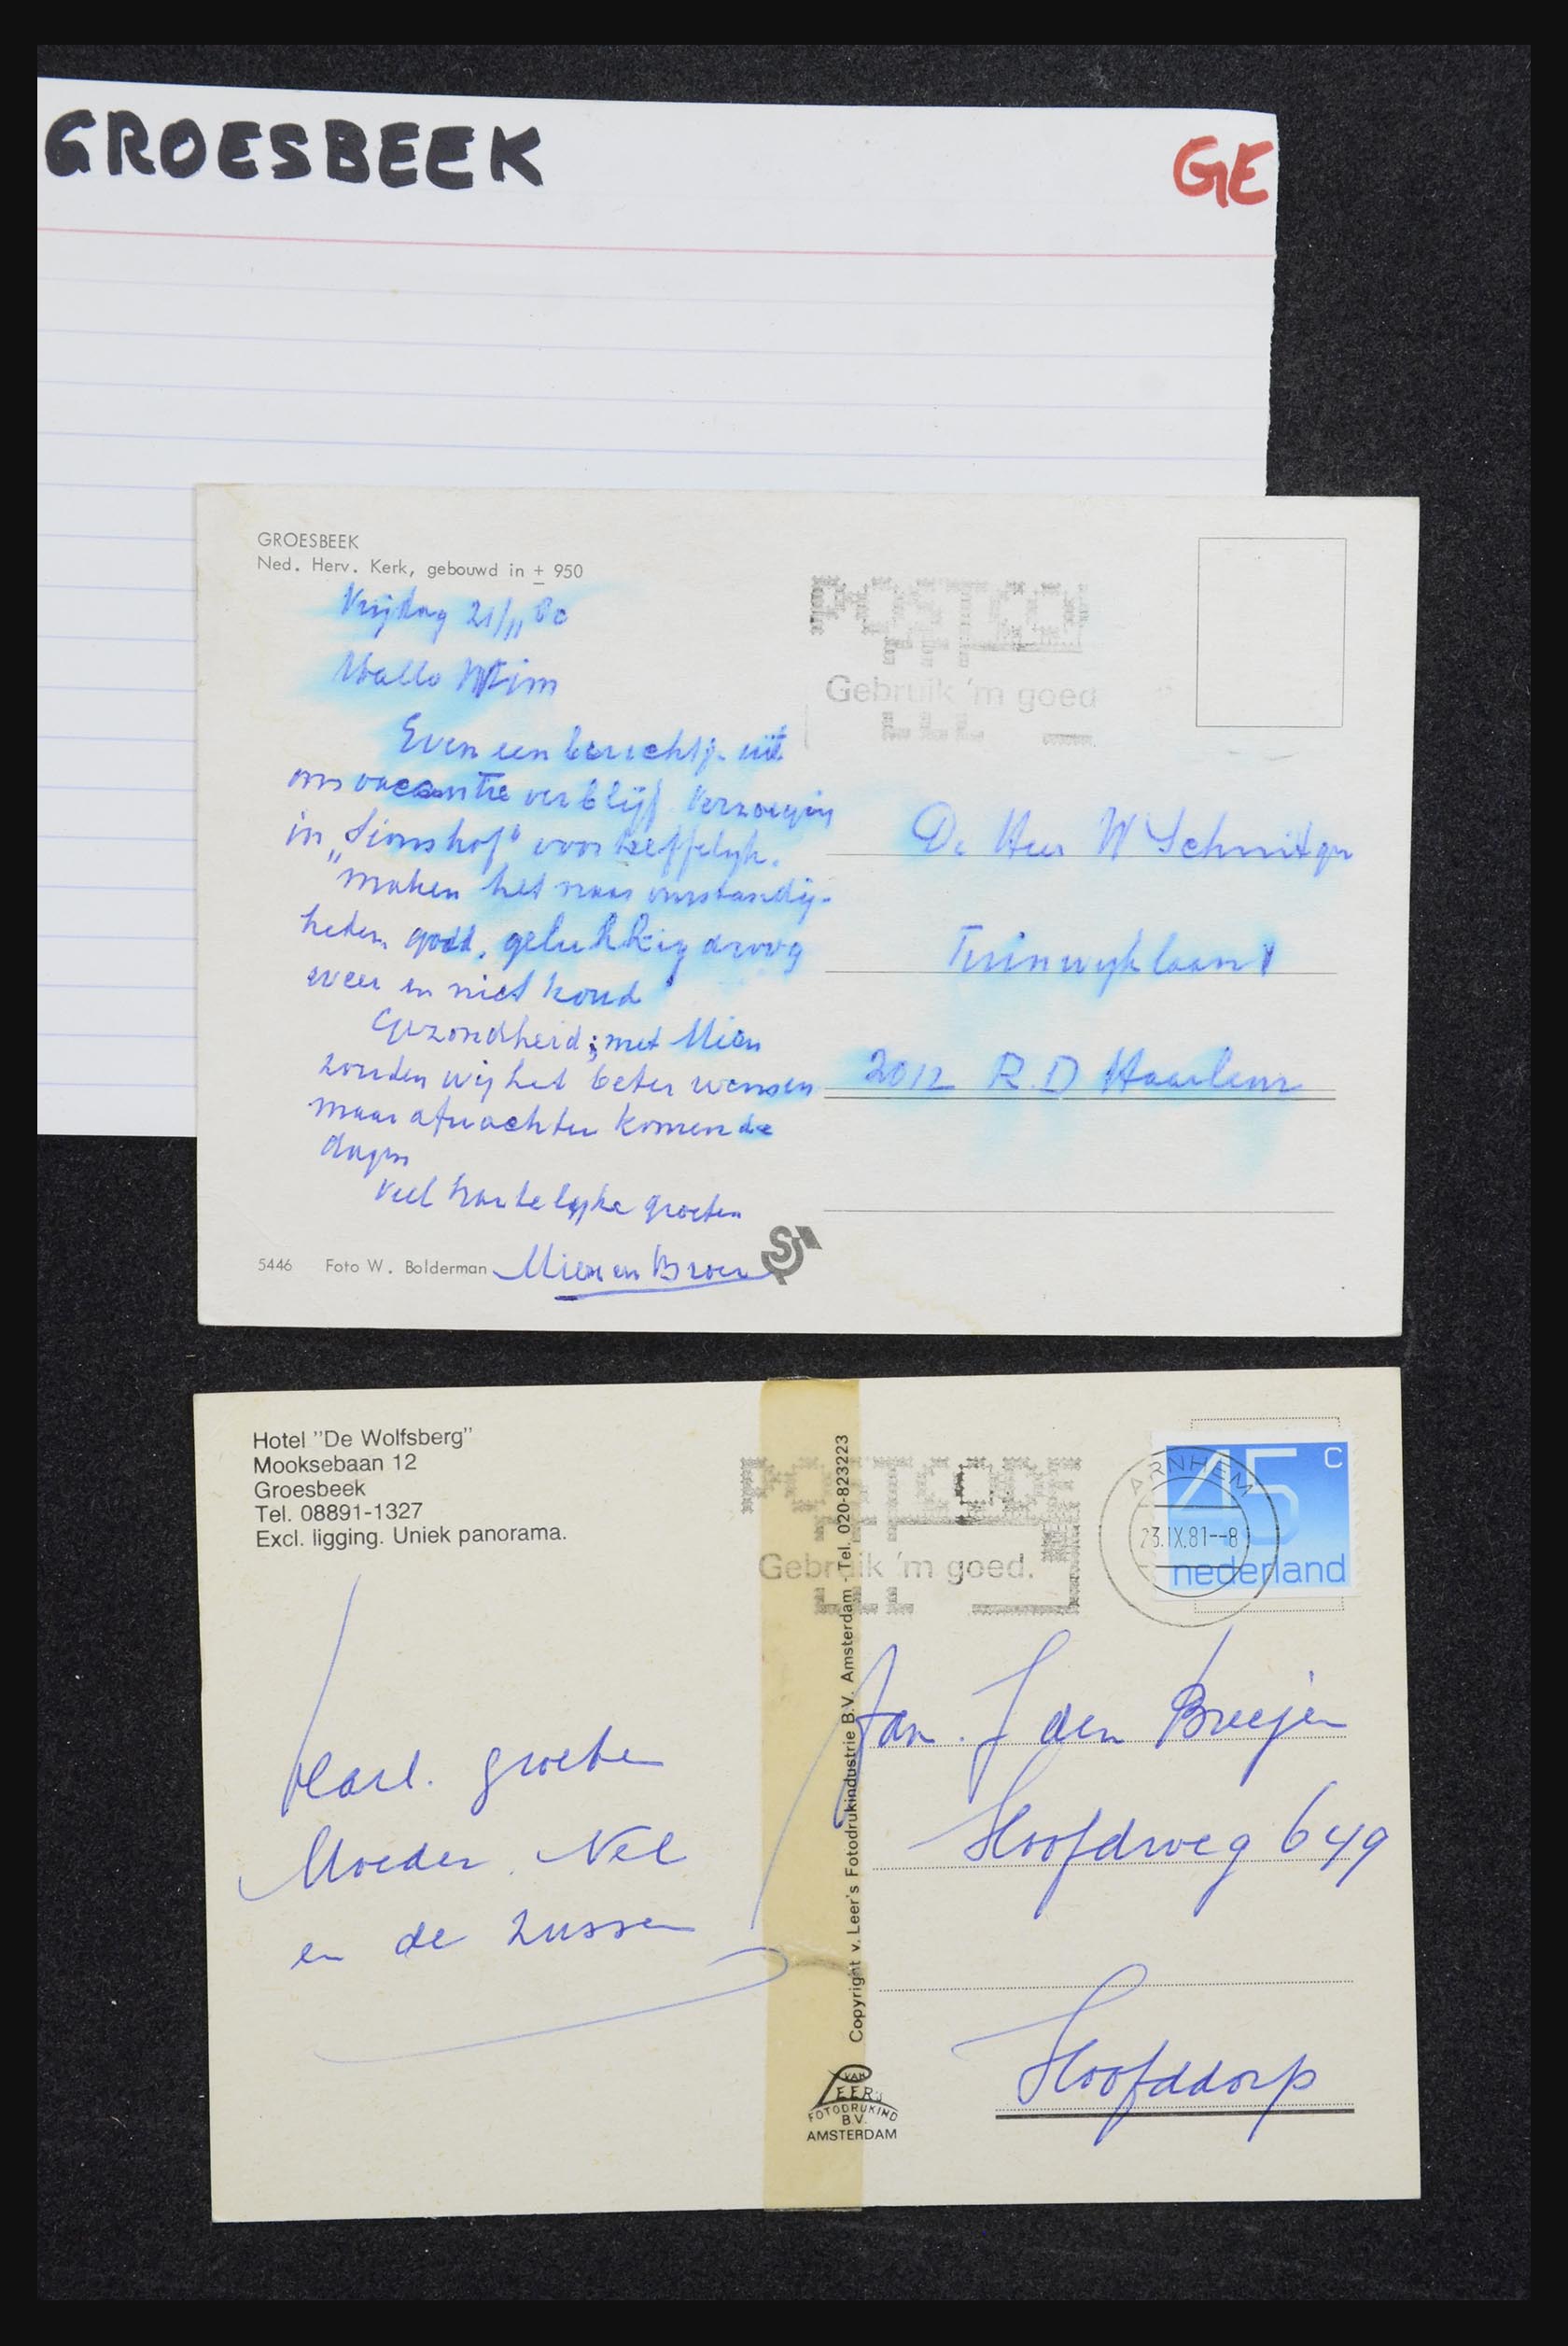 GROESBEEK
GE
GROESBEEK
Ned. Herv. Kerk, gebouwd in ± 950
Vrijdag 21/11 80
Hallo Wim
Even een berichtje uit
ons vacantie verblijf. Verzorging
in „Sionshof" voortreffelijk.
Maken het naar omstandig-
heden goed, gelukkig droog
weer en niet koud
Gezondheid; met Mien
zouden wij het beter wensen
maar afwachten komende
dagen
Veel hartelijke groeten
Mien en Broer
5446 Foto W. Bolderman
POSTCODE
Gebruik 'm goed
De Heer W Schmitger
Tuinwijklaan 1
2012 R.D Haarlem
Hotel "De Wolfsberg"
Mooksebaan 12
Groesbeek
Tel. 08891-1327
Excl. ligging. Uniek panorama.
Hart. groeten
Moeder. Nel
en de zussen
Copyright v. Leer's Fotodrukindustrie B.V. Amsterdam - Tel. 020-823223
VAN
LEER'S
FOTODRUKIND
B.V.
AMSTERDAM
POSTCODE
Gebruik 'm goed.
ARNHEM
23.IX.81--8
45 c
nederland
Fam. J den Breejen
Hoofdweg 649
Hoofddorp